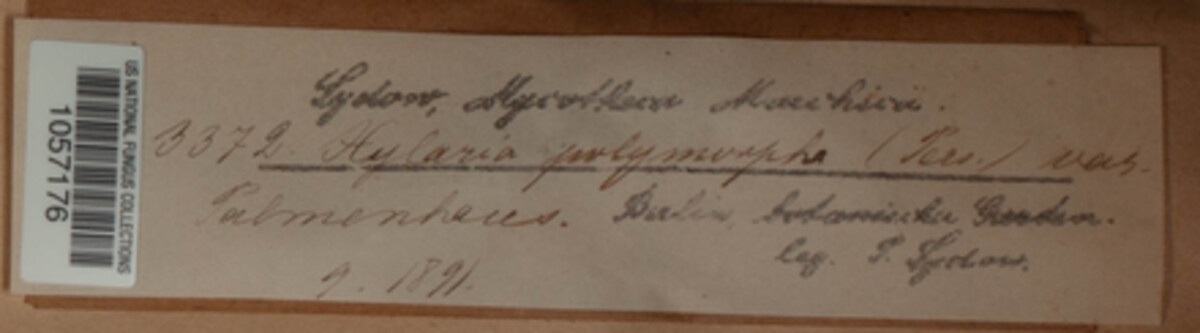 US NATIONAL FUNGUS COLLECTIONS
1057176
Sydow, Mycotheca Marchica.
3372. Xylaria polymorpha (Pers.) var.
Palmenhaus. Berlin, botanischer Garten.
leg. P. Sydow.
9. 1891.